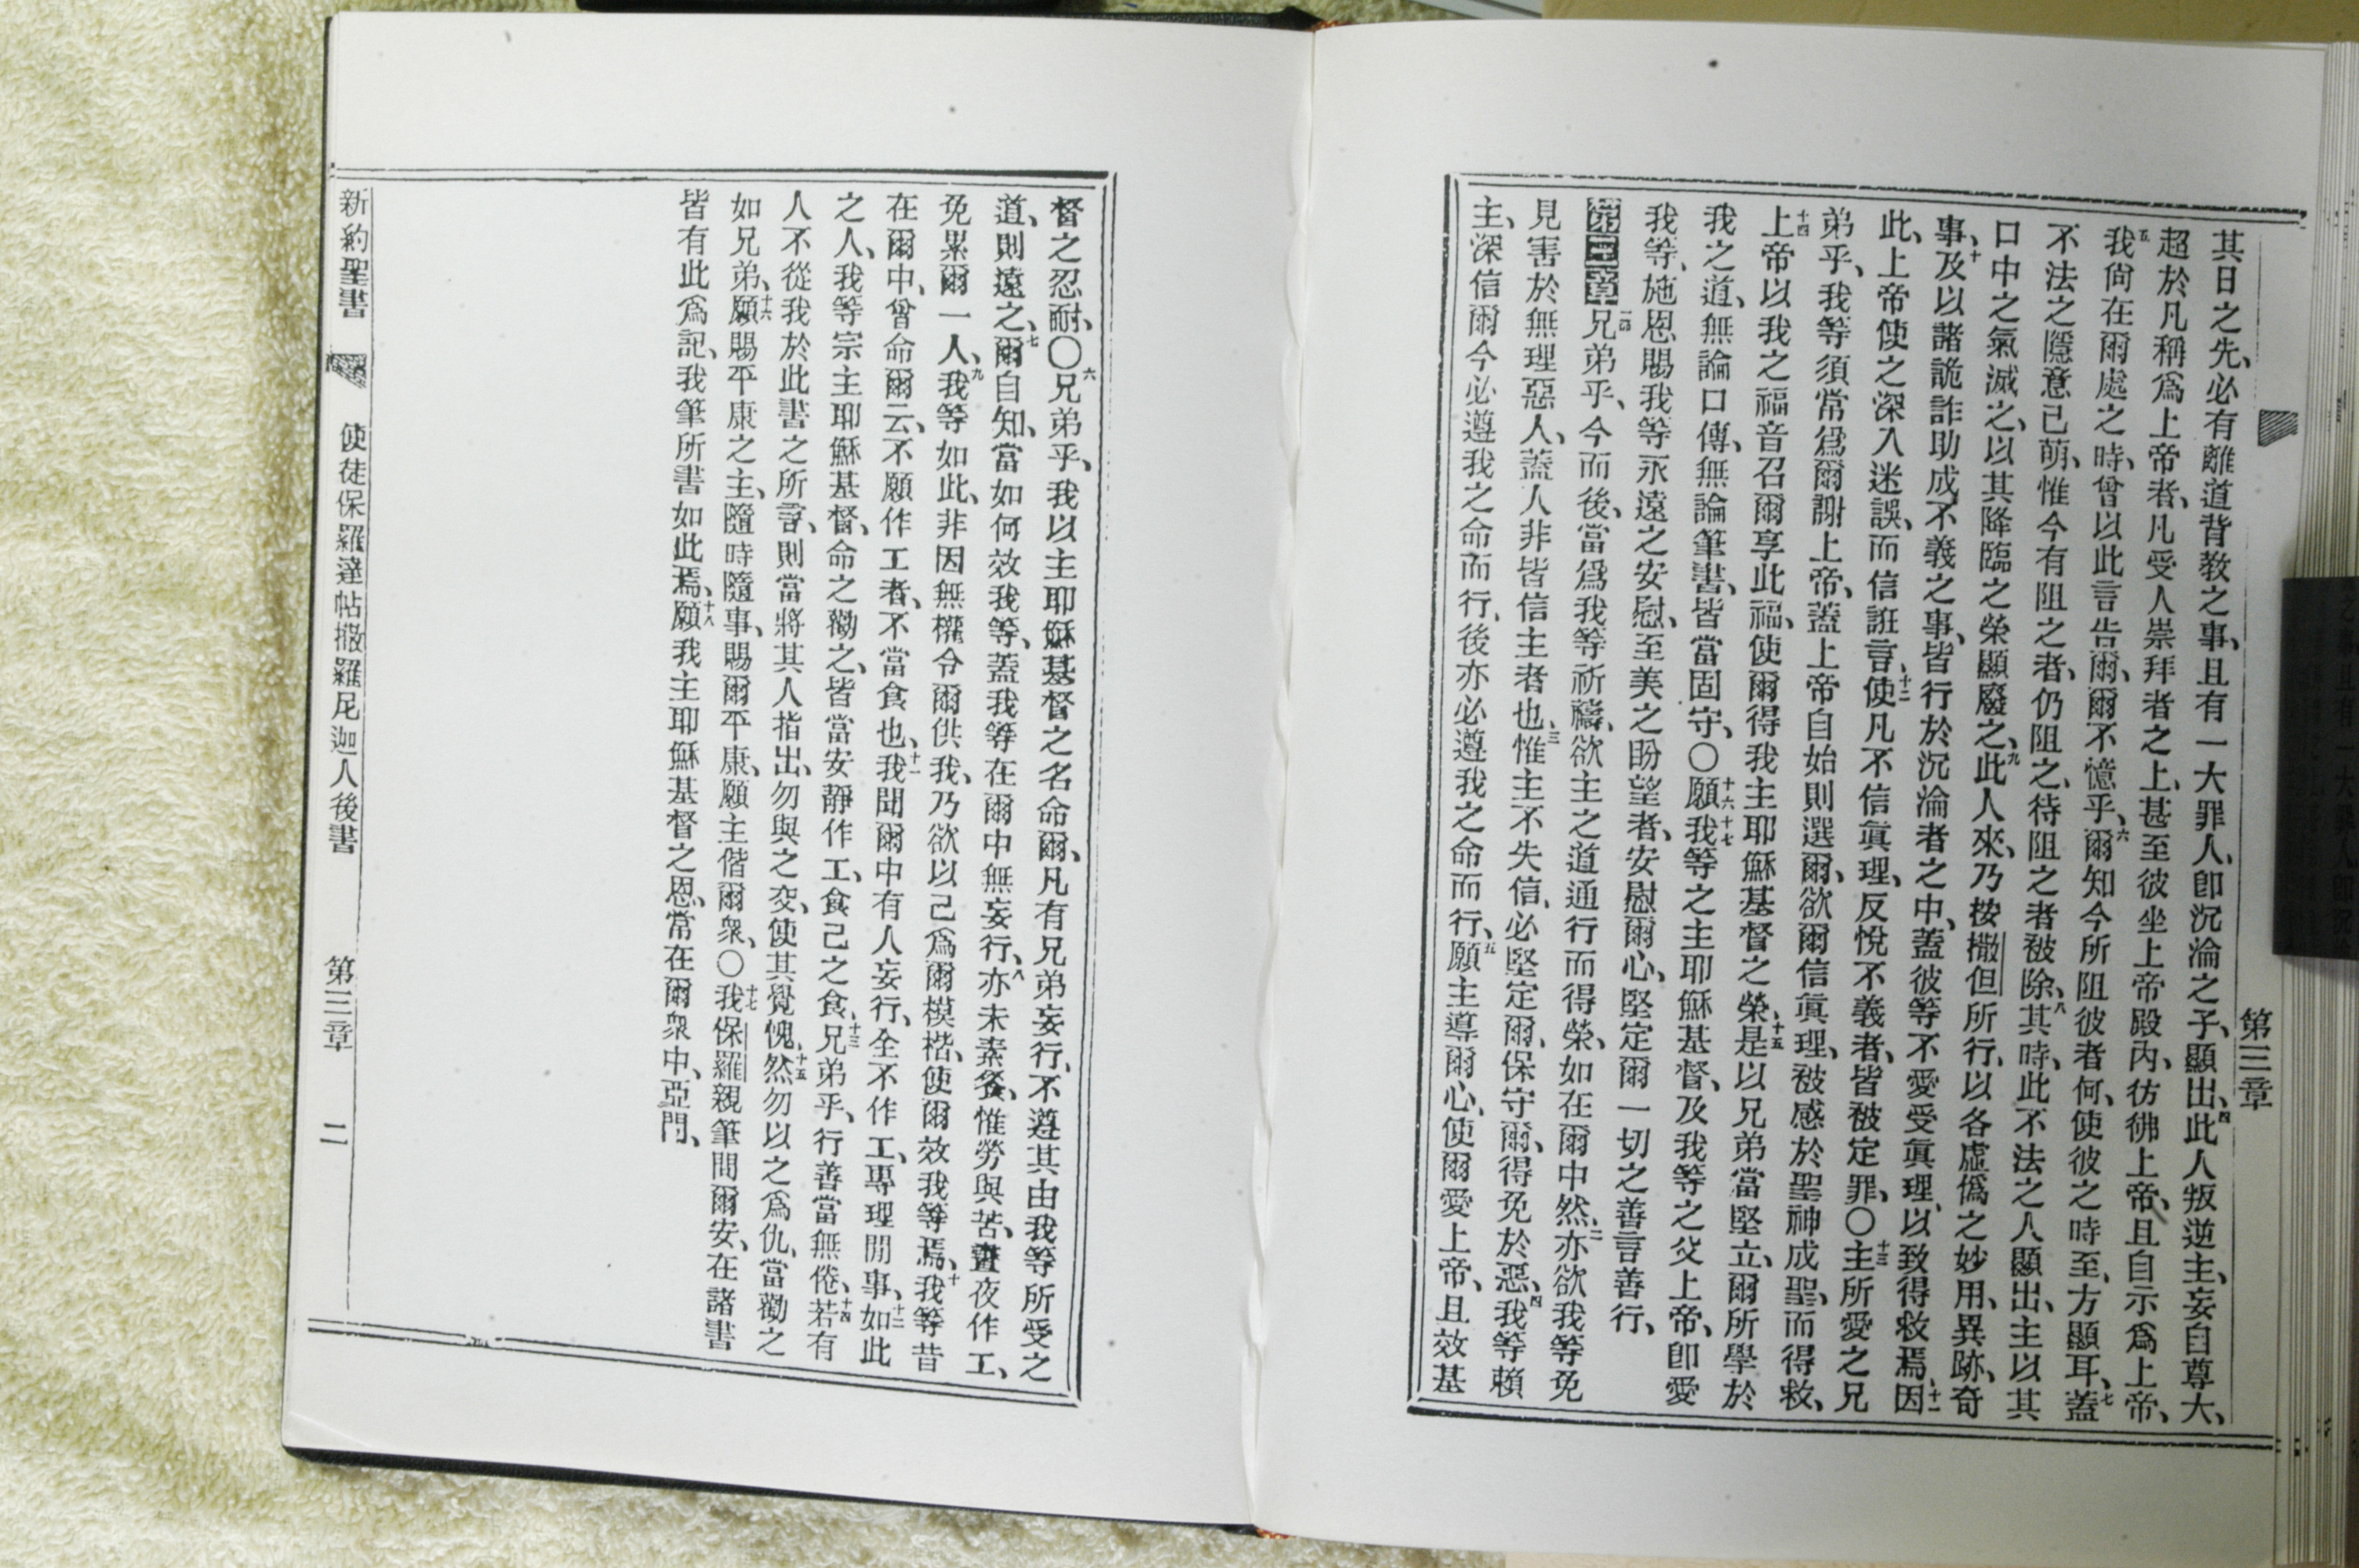 第三章
其日之先、必有離道背教之事、且有一大罪人、卽沉淪之子、顯出、四此人叛逆主、妄自尊大、
超於凡稱爲上帝者、凡受人崇拜者之上、甚至彼坐上帝殿內、彷彿上帝、且自示爲上帝、
五我尙在爾處之時、曾以此言告爾、爾不憶乎、六爾知今所阻彼者何、使彼之時至、方顯耳、七蓋
不法之隱意已萌、惟今有阻之者、仍阻之、待阻之者被除、八其時、此不法之人顯出、主以其
口中之氣滅之、以其降臨之榮顯廢之、九此人來、乃按撒但所行、以各虛僞之妙用、異跡、奇
事、十及以諸詭詐助成不義之事、皆行於沉淪者之中、蓋彼等不愛受眞理、以致得救焉、十一因
此、上帝使之深入迷誤、而信誑言、十二使凡不信眞理、反悅不義者、皆被定罪、〇十三主所愛之兄
弟乎、我等須常爲爾謝上帝、蓋上帝自始則選爾、欲爾信眞理、被感於聖神成聖、而得救、
十四上帝以我之福音召爾享此福、使爾得我主耶穌基督之榮、十五是以兄弟當堅立、爾所學於
我之道、無論口傳、無論筆書、皆當固守、〇十六願十七我等之主耶穌基督、及我等之父上帝、卽愛
我等、施恩賜我等永遠之安慰、至美之盼望者、安慰爾心、堅定爾一切之善言善行、
第三章一兄弟乎、今而後、當爲我等祈禱、欲主之道通行而得榮、如在爾中然、二亦欲我等免
見害於無理惡人、蓋人非皆信主者也、三惟主不失信、必堅定爾、保守爾、得免於惡、四我等賴
主、深信爾今必遵我之命而行、後亦必遵我之命而行、五願主導爾心、使爾愛上帝、且效基
督之忍耐、〇六兄弟乎、我以主耶穌基督之名命爾、凡有兄弟妄行、不遵其由我等所受之
道、則遠之、七爾自知、當如何效我等、蓋我等在爾中無妄行、八亦未素餐、惟勞與苦、晝夜作工、
免累爾一人、九我等如此、非因無權令爾供我、乃欲以己爲爾模楷、使爾效我等焉、十我等昔
在爾中、曾命爾云、不願作工者、不當食也、十一我聞爾中有人妄行、全不作工、專理閒事、十二如此
之人、我等宗主耶穌基督、命之勸之、皆當安靜作工、食己之食、十三兄弟乎、行善當無倦、十四若有
人不從我於此書之所言、則當將其人指出、勿與之交、使其覺愧、十五然勿以之爲仇、當勸之
如兄弟、十六願賜平康之主、隨時隨事、賜爾平康、願主偕爾衆、〇十七我保羅親筆問爾安、在諸書
皆有此爲記、我筆所書如此焉、十八願我主耶穌基督之恩、常在爾衆中、亞門、
新約聖書 使徒保羅達帖撒羅尼迦人後書 第三章 二